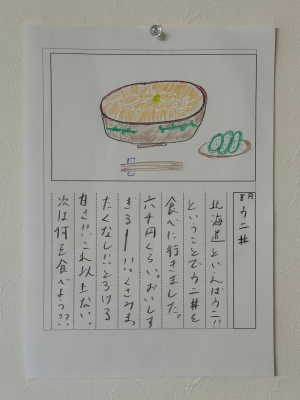 8月
ウニ丼
北海道といえばウニ!!
ということでウニ丼を
食べに行きました。
六千円くらい。おいしす
ぎるー!!!くさみも
たくなし!!とろける
甘さ!!これ以上ない。
次は何を食べよう??